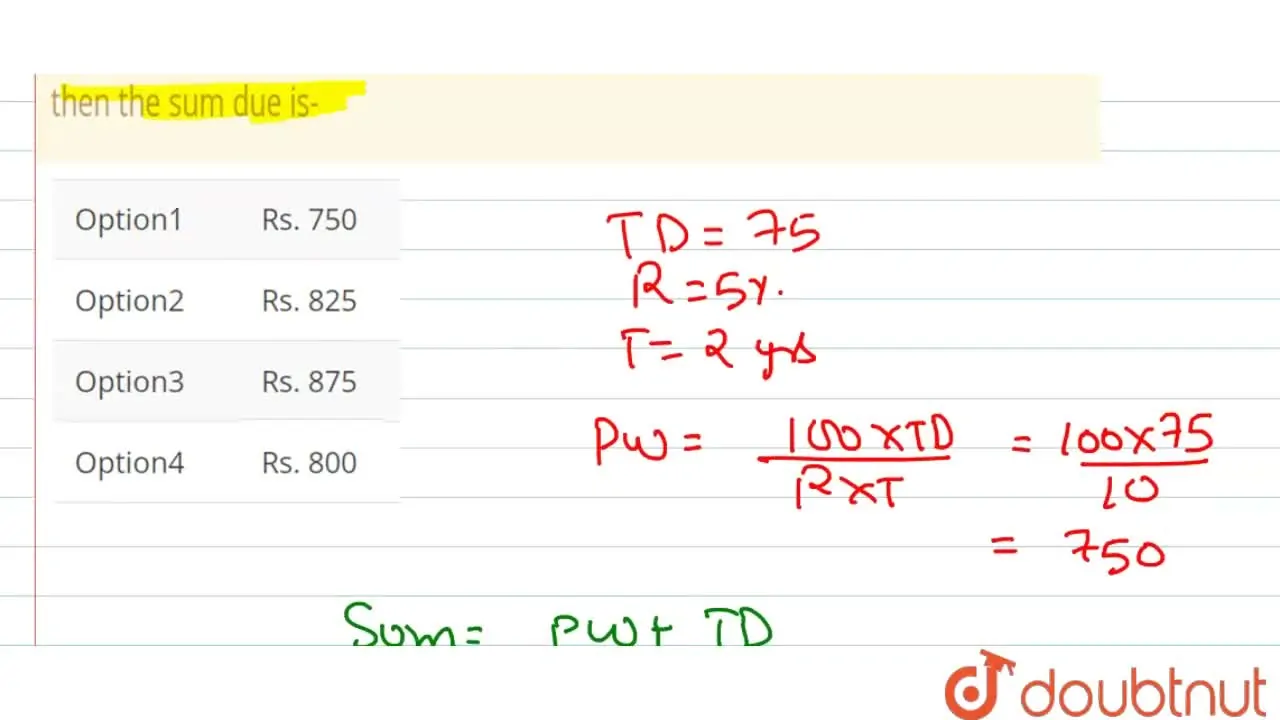 then the sum due is-
Option1 Rs. 750
Option2 Rs. 825
Option3 Rs. 875
Option4 Rs. 800
TD = 75
R = 5%.
T = 2 yrs
PW = 100×TD / R×T = 100×75 / 10
= 750
Sum = PW + TD
doubtnut